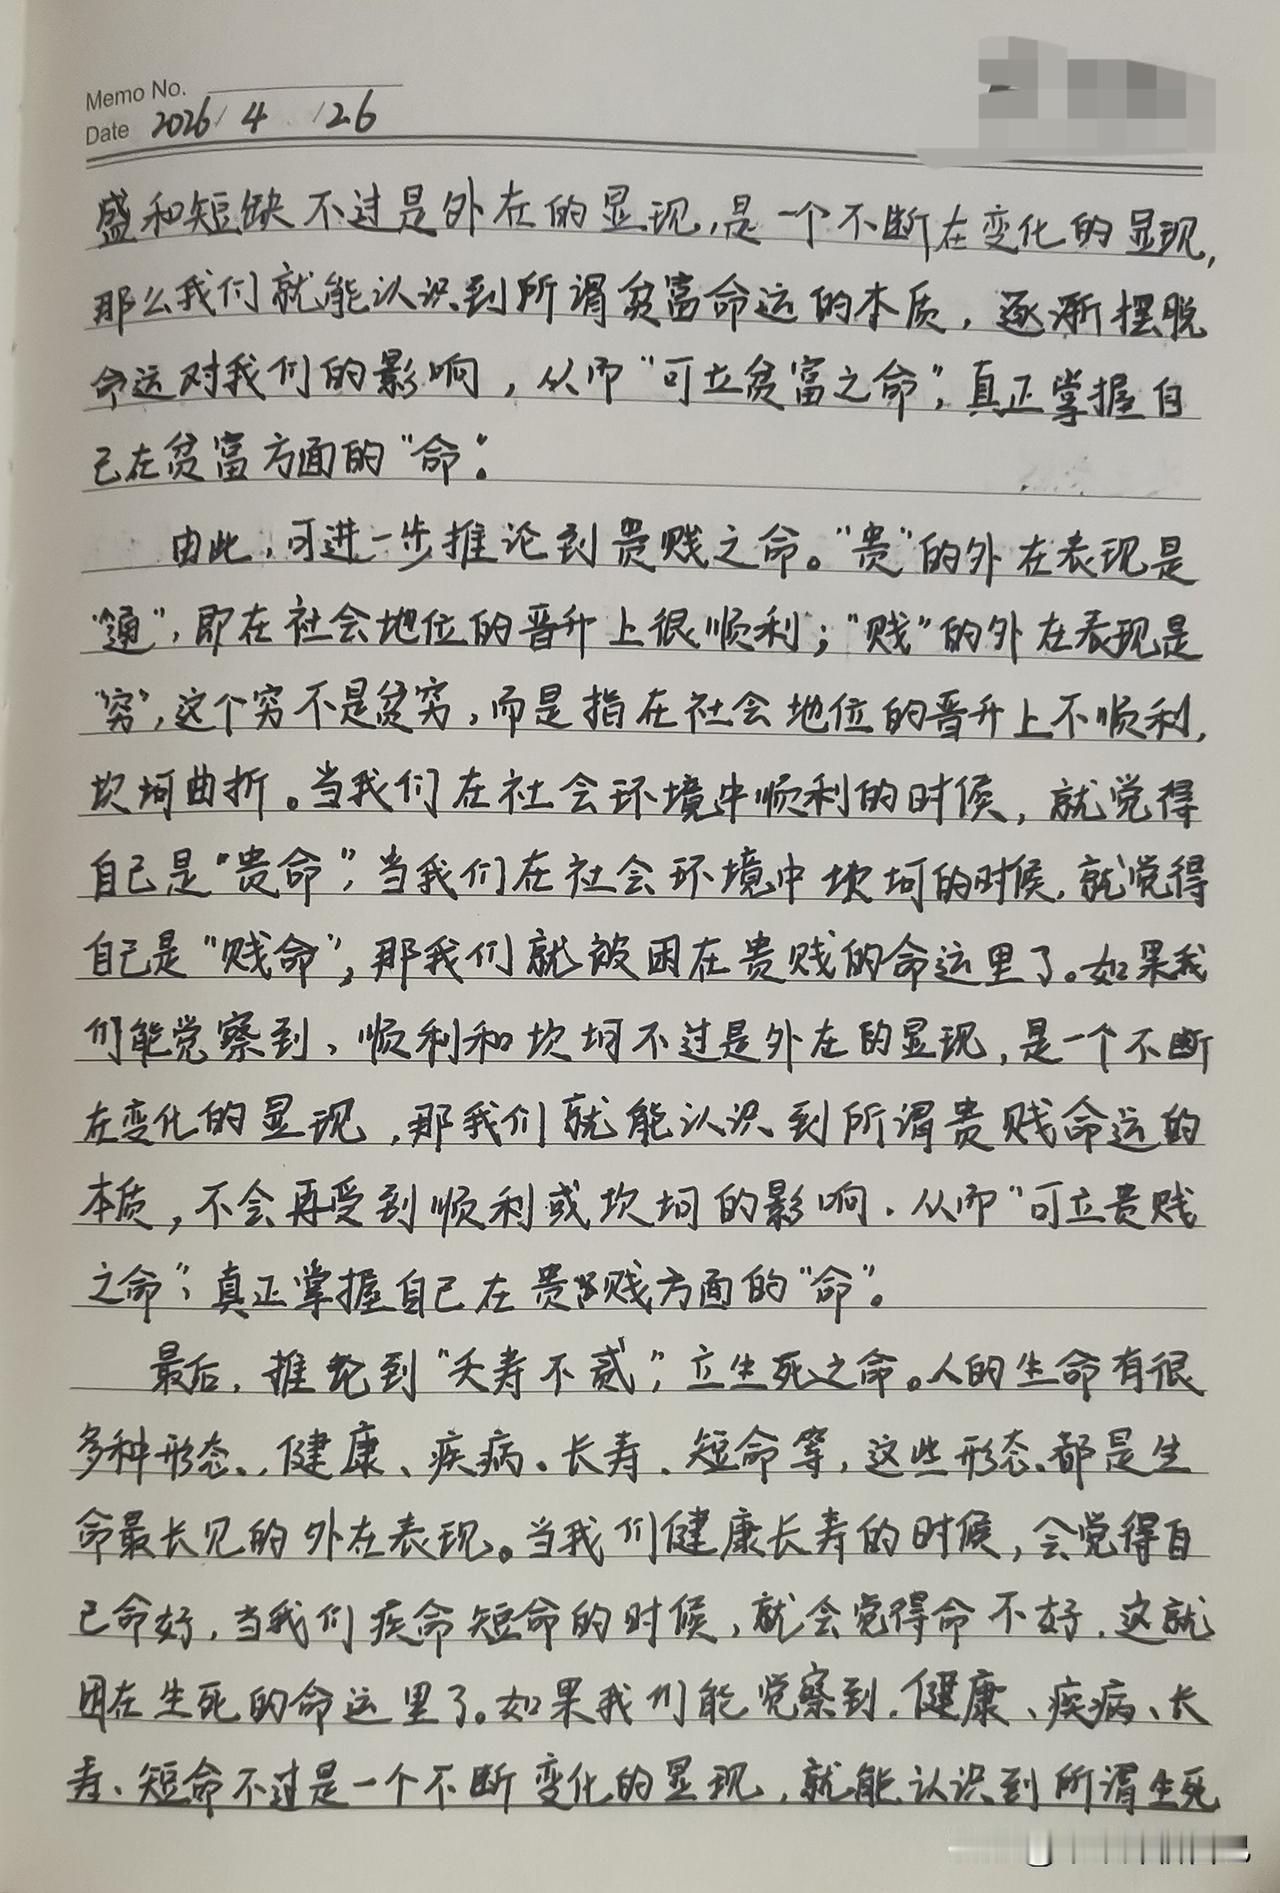 Memo No.
Date 2026/4/26
盛和短缺不过是外在的显现,是一个不断在变化的显现,
那么我们就能认识到所谓贫富命运的本质，逐渐摆脱
命运对我们的影响，从而“可立贫富之命”，真正掌握自
己在贫富方面的“命”。
由此，可进一步推论到贵贱之命。“贵”的外在表现是
“通”，即在社会地位的晋升上很顺利；“贱”的外在表现是
“穷”，这个穷不是贫穷，而是指在社会地位的晋升上不顺利，
坎坷曲折。当我们在社会环境中顺利的时候，就觉得
自己是“贵命”，当我们在社会环境中坎坷的时候，就觉得
自己是“贱命”，那我们就被困在贵贱的命运里了。如果我
们能觉察到，顺利和坎坷不过是外在的显现，是一个不断
在变化的显现，那我们就能认识到所谓贵贱命运的
本质，不会再受到顺利或坎坷的影响，从而“可立贵贱
之命”，真正掌握自己在贵贱方面的“命”。
最后，推论到“夭寿不贰”，立生死之命。人的生命有很
多种形态，健康、疾病、长寿、短命等，这些形态都是生
命最长见的外在表现。当我们健康长寿的时候，会觉得自
己命好，当我们疾命短命的时候，就会觉得命不好，这就
困在生死的命运里了。如果我们能觉察到，健康、疾病、长
寿、短命不过是一个不断变化的显现，就能认识到所谓生死